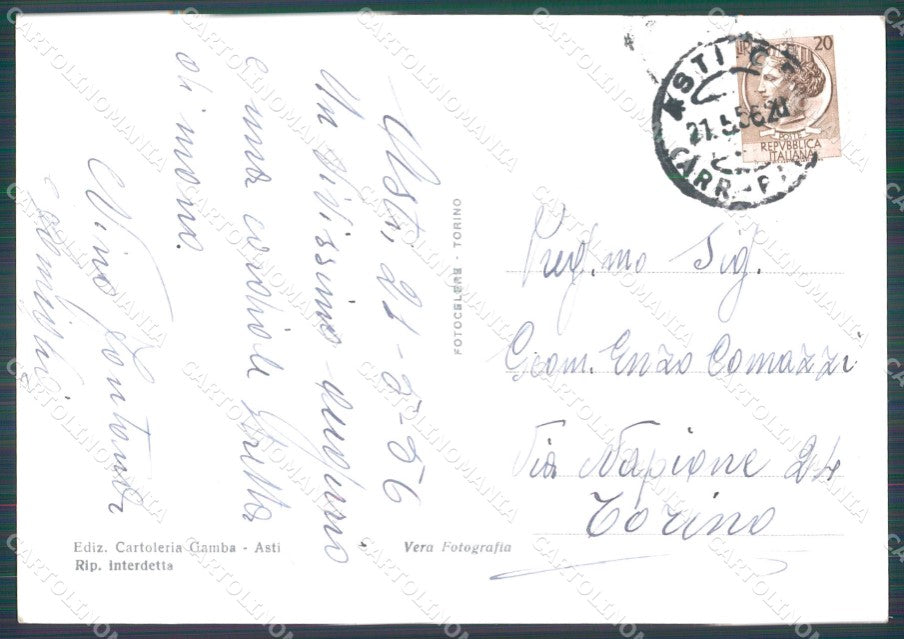 Asti, 21-5-56
Un vivissimo augurio
e una cordiale stretta
di mano.
Vino Fontana
e famiglia
FOTOCELERE - TORINO
ASTI
21.5.56.20
CARR-P
20
POSTE
REPVBBLICA
ITALIANA
Preg.mo Sig.
Geom. Enzo Comazzi
Via Napione 24
Torino
Ediz. Cartoleria Gamba - Asti
Rip. interdetta
Vera Fotografia
CARTOLINOMANIA